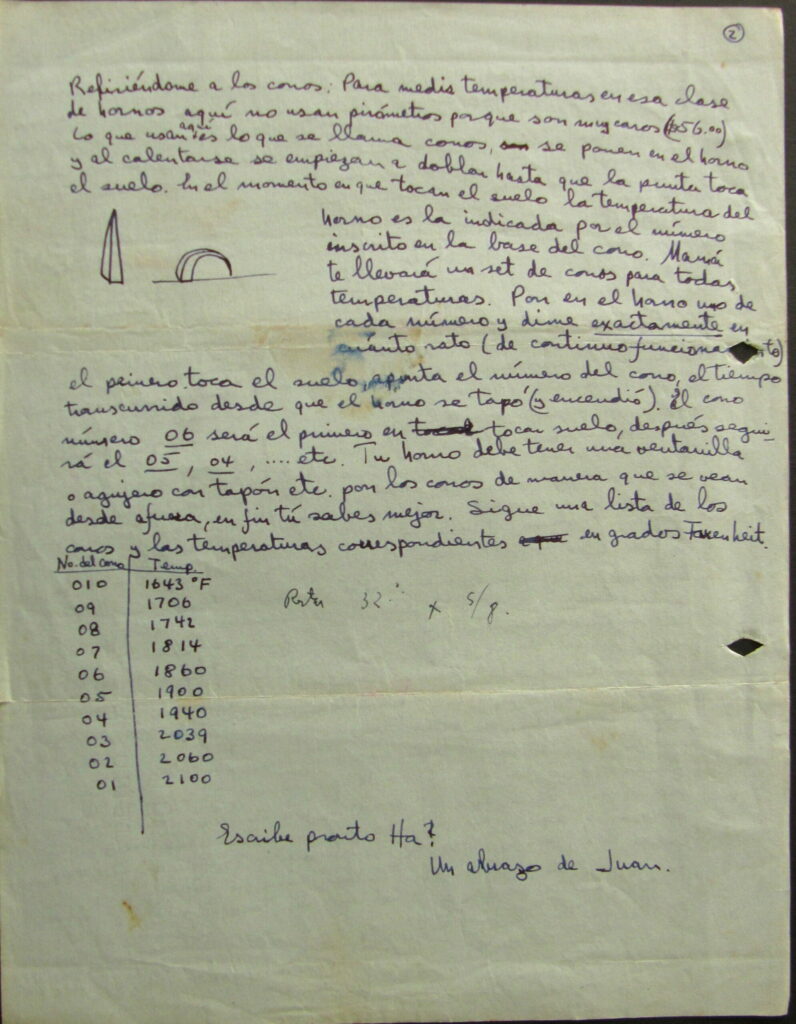 2
Refiriéndome a los conos: Para medir temperaturas en esa clase
de hornos aquí no usan pirómetros porque son muy caros ($56.00)
Lo que usan aquí es lo que se llama conos, se ponen en el horno
y al calentarse se empiezan a doblar hasta que la punta toca
el suelo. En el momento en que tocan el suelo la temperatura del
horno es la indicada por el número
inscrito en la base del cono. Mamá
te llevará un set de conos para todas
temperaturas. Pon en el horno uno de
cada número y dime exactamente en
cuánto rato (de continuo funcionamiento)
el primero toca el suelo, apunta el número del cono, el tiempo
transcurrido desde que el horno se tapó (y encendió). El cono
número 06 será el primero en tocar suelo, después segui-
rá el 05, 04, .... etc. Tu horno debe tener una ventanilla
o agujero con tapón etc. pon los conos de manera que se vean
desde afuera, en fin tú sabes mejor. Sigue una lista de los
conos y las temperaturas correspondientes en grados Farenheit.
No. del Cono Temp.
010 1643 °F
09 1706
08 1742
07 1814
06 1860
05 1900
04 1940
03 2039
02 2060
01 2100
32° x 5/9.
Escribe pronto Ha?
Un abrazo de Juan.